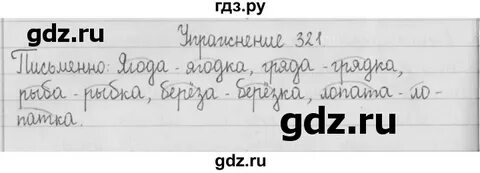 гдз.ру
Упражнение 321.
Письменно: Ягода - ягодка, гряда - грядка,
рыба - рыбка, берёза - берёзка, лопата - ло-
патка.
gdz.ru
gdz.ru